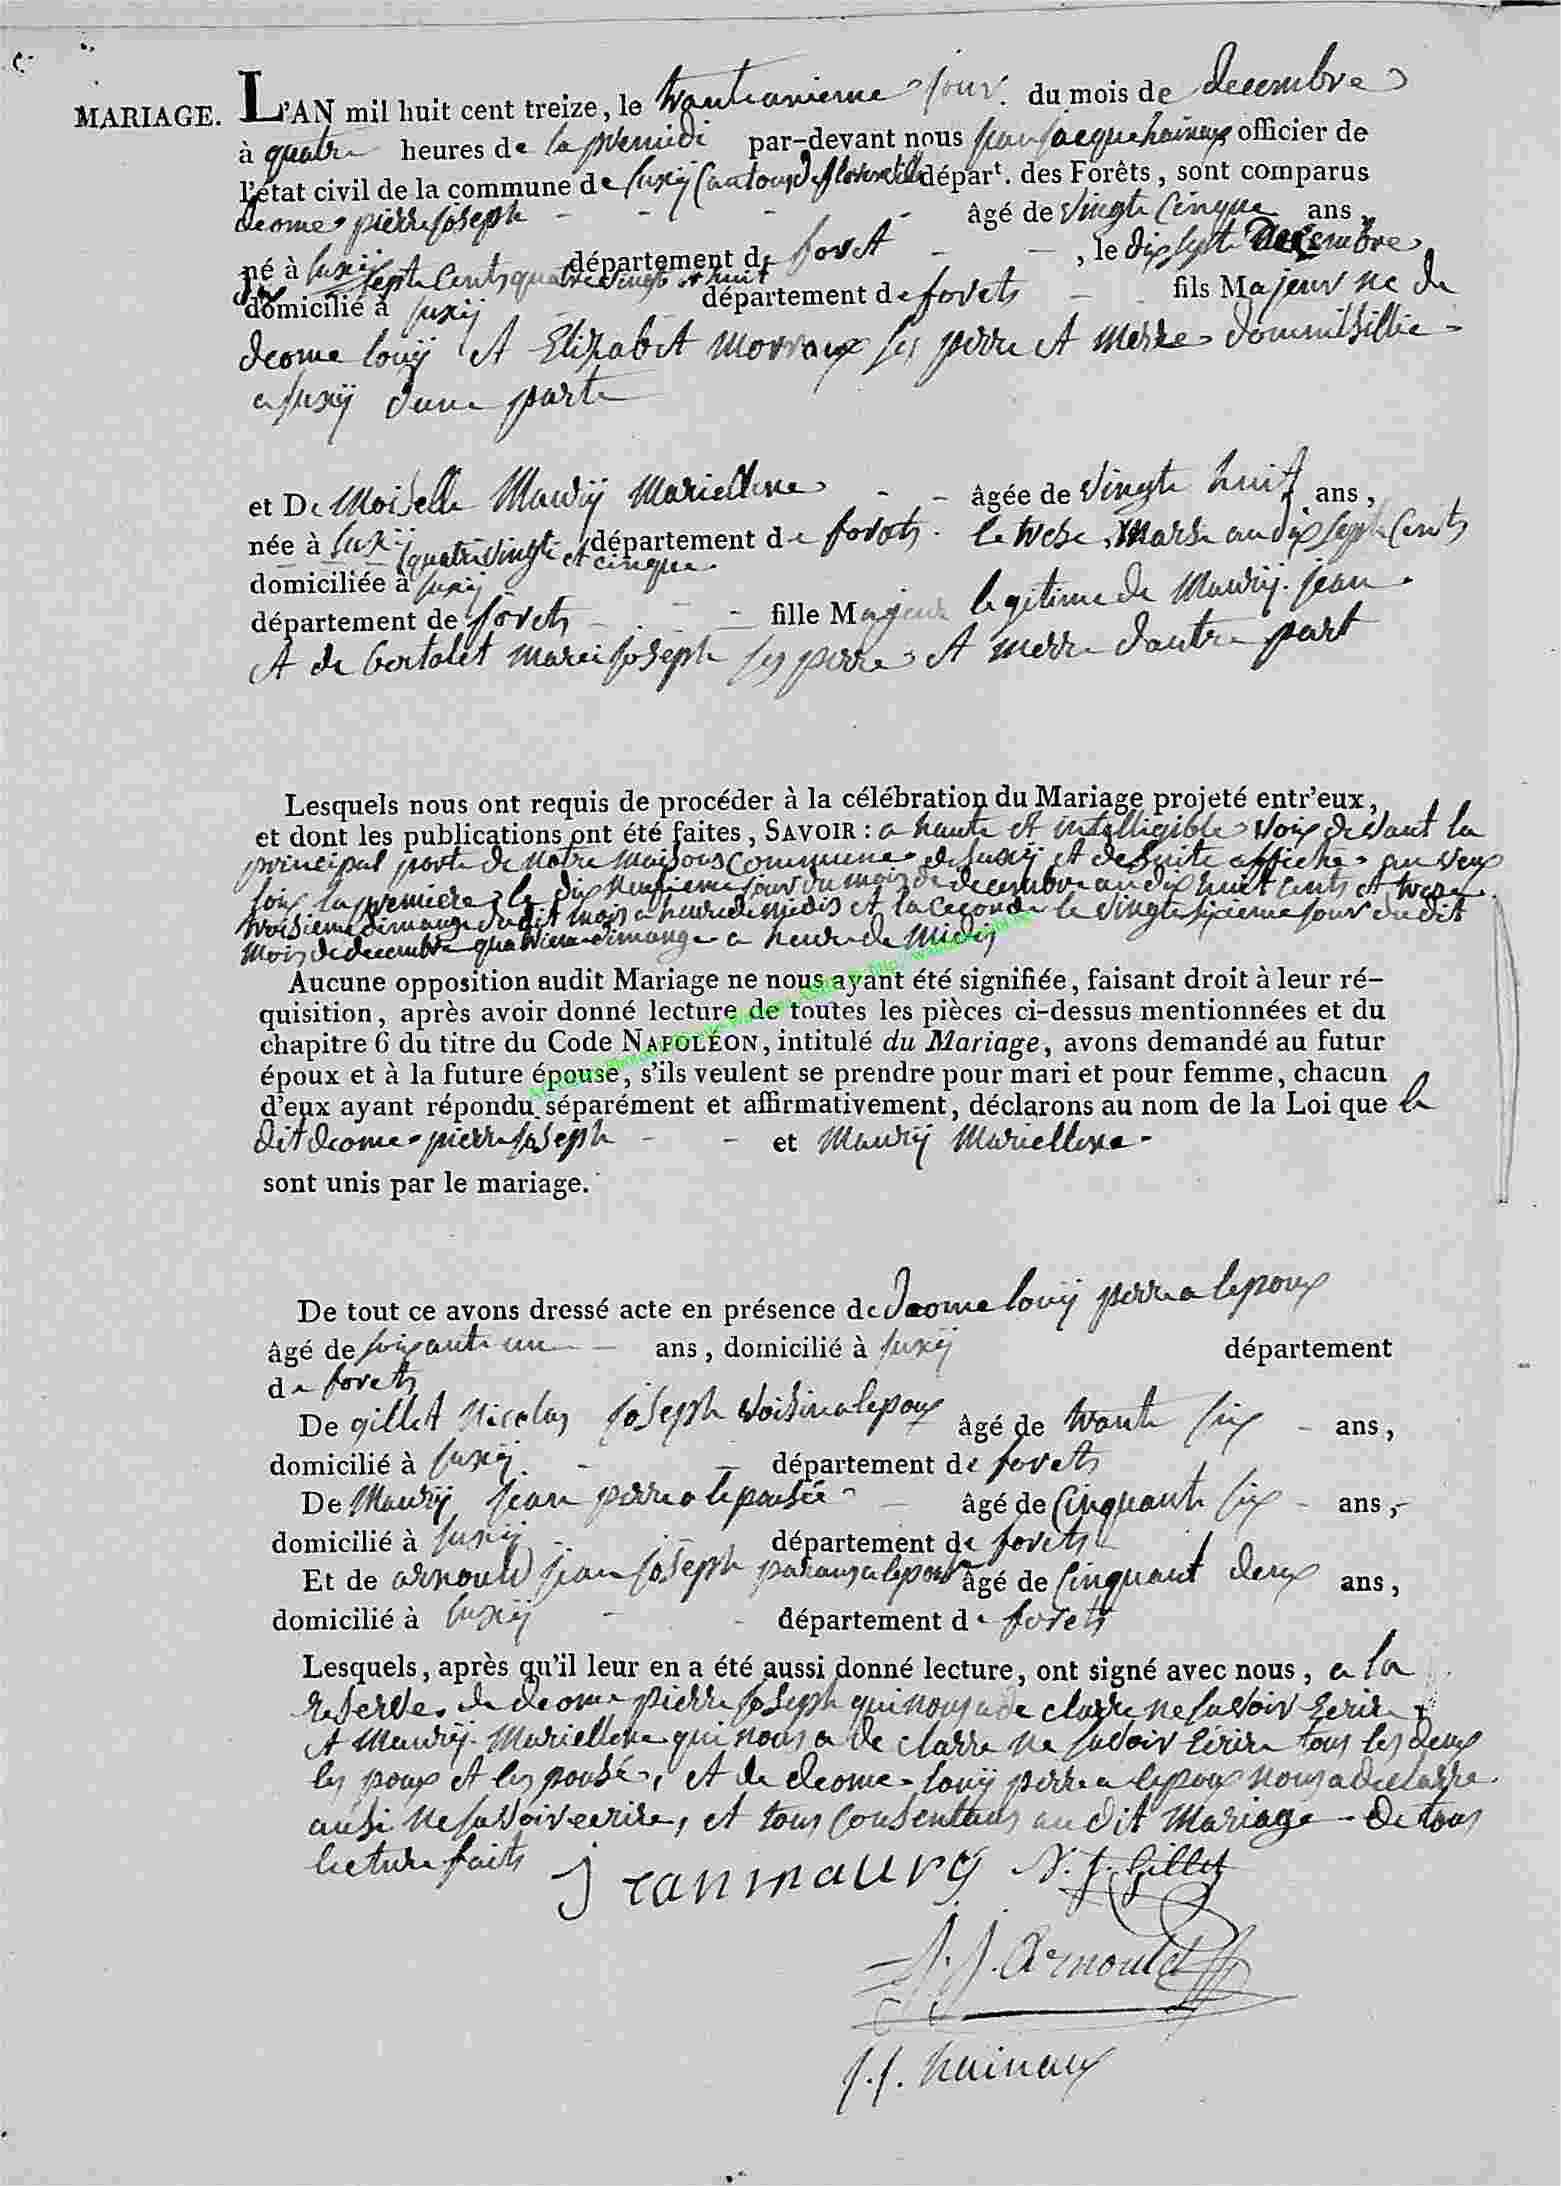 MARIAGE. L'AN mil huit cent treize, le trantunieme jour du mois de decembre
à quatre heures de la premidi par-devant nous jean jacque hainaux officier de
l'état civil de la commune de suxÿ Canton de florenville départ. des Forêts, sont comparus
deome pierre joseph - - - - âgé de vingte Cinque ans,
né à suxÿ département de foret - - , le dix septe Decembre
dix septe Cents quatre vingts et huit
domicilié à suxÿ - département de forets - fils Majeur ne de
deome louÿ et Elizabet morraux ses perre et merre dommissillie -
a suxÿ dune parte
et De Moiselle Maurÿ Mariellene - - âgée de vingte huit ans,
née à suxÿ département de forets. le treze marse an dix septe Cents
quatre vingte et cinque.
domiciliée à suxÿ
département de forets - - - fille Majeur legitime de Maurÿ jean
et de bertolet marei joseph ses perre et merre dautre part
Lesquels nous ont requis de procéder à la célébration du Mariage projeté entr'eux,
et dont les publications ont été faites, SAVOIR : a haute et intelligible voix devant la
principal porte de notre maison commune de suxÿ et de suite affiche au
fois la premiere le dix neufieme jour du mois de decembre an dix huit cents et treze
troisieme dimange du dit mois a heure de midis et la ceconde le vingte sixieme jour du dit
mois de decembre quatrieme dimange a heure de Midis
Aucune opposition audit Mariage ne nous ayant été signifiée, faisant droit à leur ré-
quisition, après avoir donné lecture de toutes les pièces ci-dessus mentionnées et du
chapitre 6 du titre du Code NAPOLÉON, intitulé du Mariage, avons demandé au futur
époux et à la future épouse, s'ils veulent se prendre pour mari et pour femme, chacun
d'eux ayant répondu séparément et affirmativement, déclarons au nom de la Loi que le
dit deome pierre joseph - - et Maurÿ Mariellene -
sont unis par le mariage.
De tout ce avons dressé acte en présence de deome louÿ perre a lepoux
âgé de soixante un - ans, domicilié à suxÿ département
de forets
De gillet Nicolas joseph voisin a lepoux âgé de trante six - ans,
domicilié à suxÿ - - département de forets
De Maurÿ jean perre a lepousée - âgé de Cinquante six - ans,
domicilié à suxÿ - - département de forets
Et de arnould jean joseph a lepoux âgé de Cinquant deux ans,
domicilié à suxÿ - - département de forets
Lesquels, après qu'il leur en a été aussi donné lecture, ont signé avec nous, a la
reserve de deome pierre joseph qui nous a de clarre ne savoir Ecrire
et Maurÿ Mariellene qui nous a de clarre ne savoir Ecrire tous les deux
les poux et les pousé, et de deome louÿ perre a lepoux nous a declarre
ausi ne savoir ecrire, et tous Consentans au dit Mariage de tous
lecture faits jean maurÿ N. j. Gillet
J. J. Arnould
J. J. hainaux